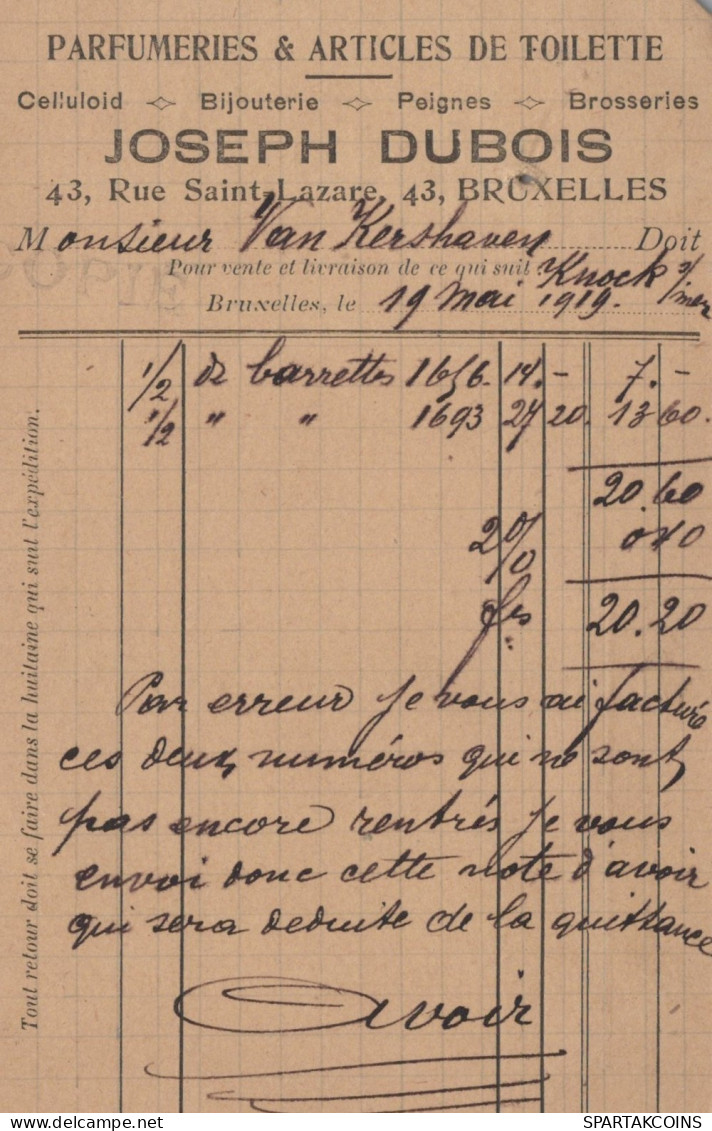 PARFUMERIES & ARTICLES DE TOILETTE
Celluloid Bijouterie Peignes Brosseries
JOSEPH DUBOIS
43, Rue Saint-Lazare, 43, BRUXELLES
Monsieur Van Kershaven Doit
COPIE
Pour vente et livraison de ce qui suit Knock s/mer
Bruxelles, le 19 mai 1919.
1/2 dz barrettes 1656. 14.- 7.-
1/2 " " 1693 27 20. 13 60.
20.60
2% 040
frs 20.20
Par erreur je vous ai facturé
ces deux numéros qui ne sont
pas encore rentrés je vous
envoi donc cette note d'avoir
qui sera deduite de la quittance
Avoir
Tout retour doit se faire dans la huitaine qui suit l'expédition.
SPARTAKCOINS